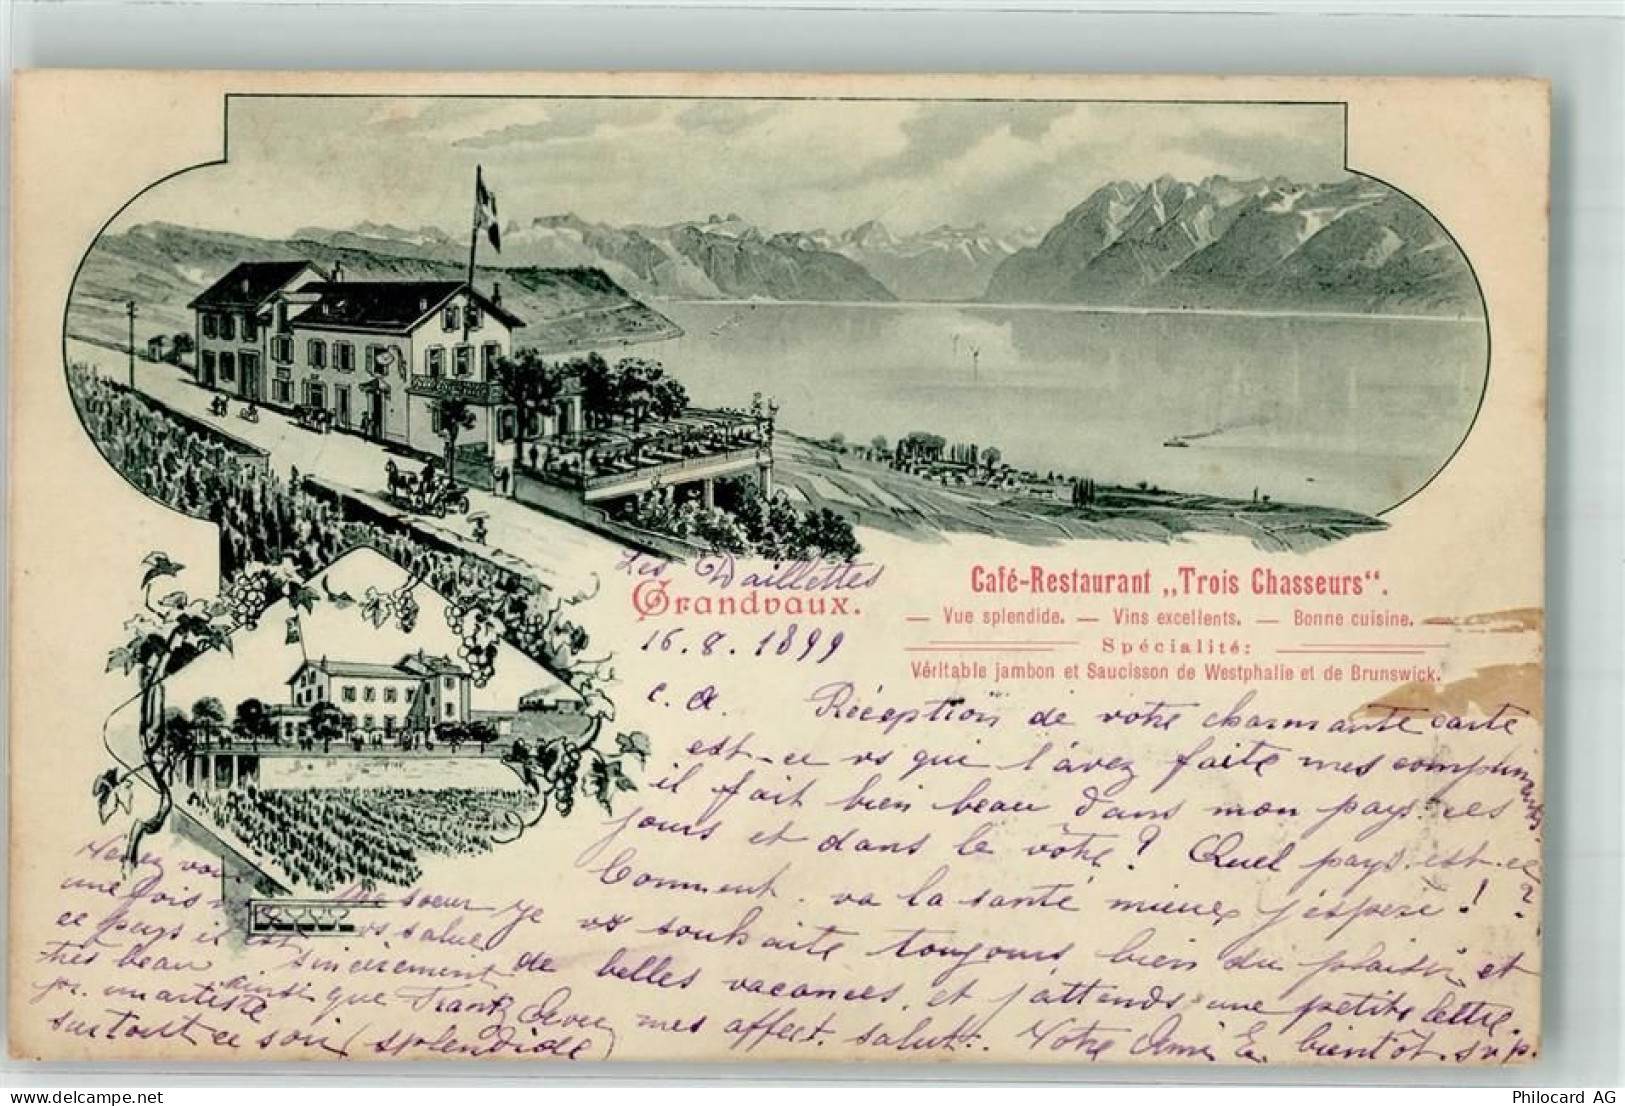 Les Daillettes
Grandvaux.
16.8.1899
Café-Restaurant „Trois Chasseurs“.
— Vue splendide. — Vins excellents. — Bonne cuisine. —
Spécialité:
Véritable jambon et Saucisson de Westphalie et de Brunswick.
c. a. Réception de votre charmante carte
est-ce vs qui l'avez faite mes compliments
il fait bien beau dans mon pays ces
jours et dans le vôtre? Quel pays est-ce
Comment va la santé mieux j'espère! ?
Je vs souhaite toujours bien du plaisir et
de belles vacances, et j'attends une petite lettre.
mes affect. salut. Votre Ami E. bientôt s.v.p.
Venez
une fois
ce pays il est
très beau
pr. un artiste
surtout ce soir (splendide)
Ma soeur
vs salue
sincèrement
ainsi que Frantz
Philocard AG